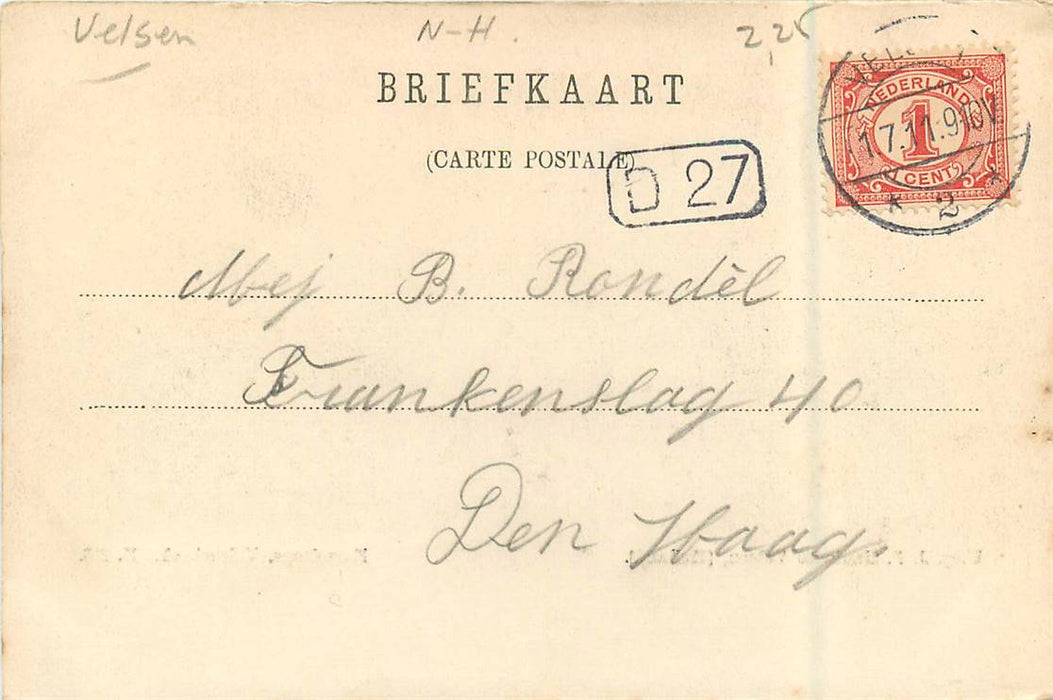 Velsen N-H. 2,25
BRIEFKAART
(CARTE POSTALE)
D 27
NEDERLAND
1
1 CENT
1.7.11.9-10V
2
Mej B. Rondèl
Frankenslag 40
Den Haag.